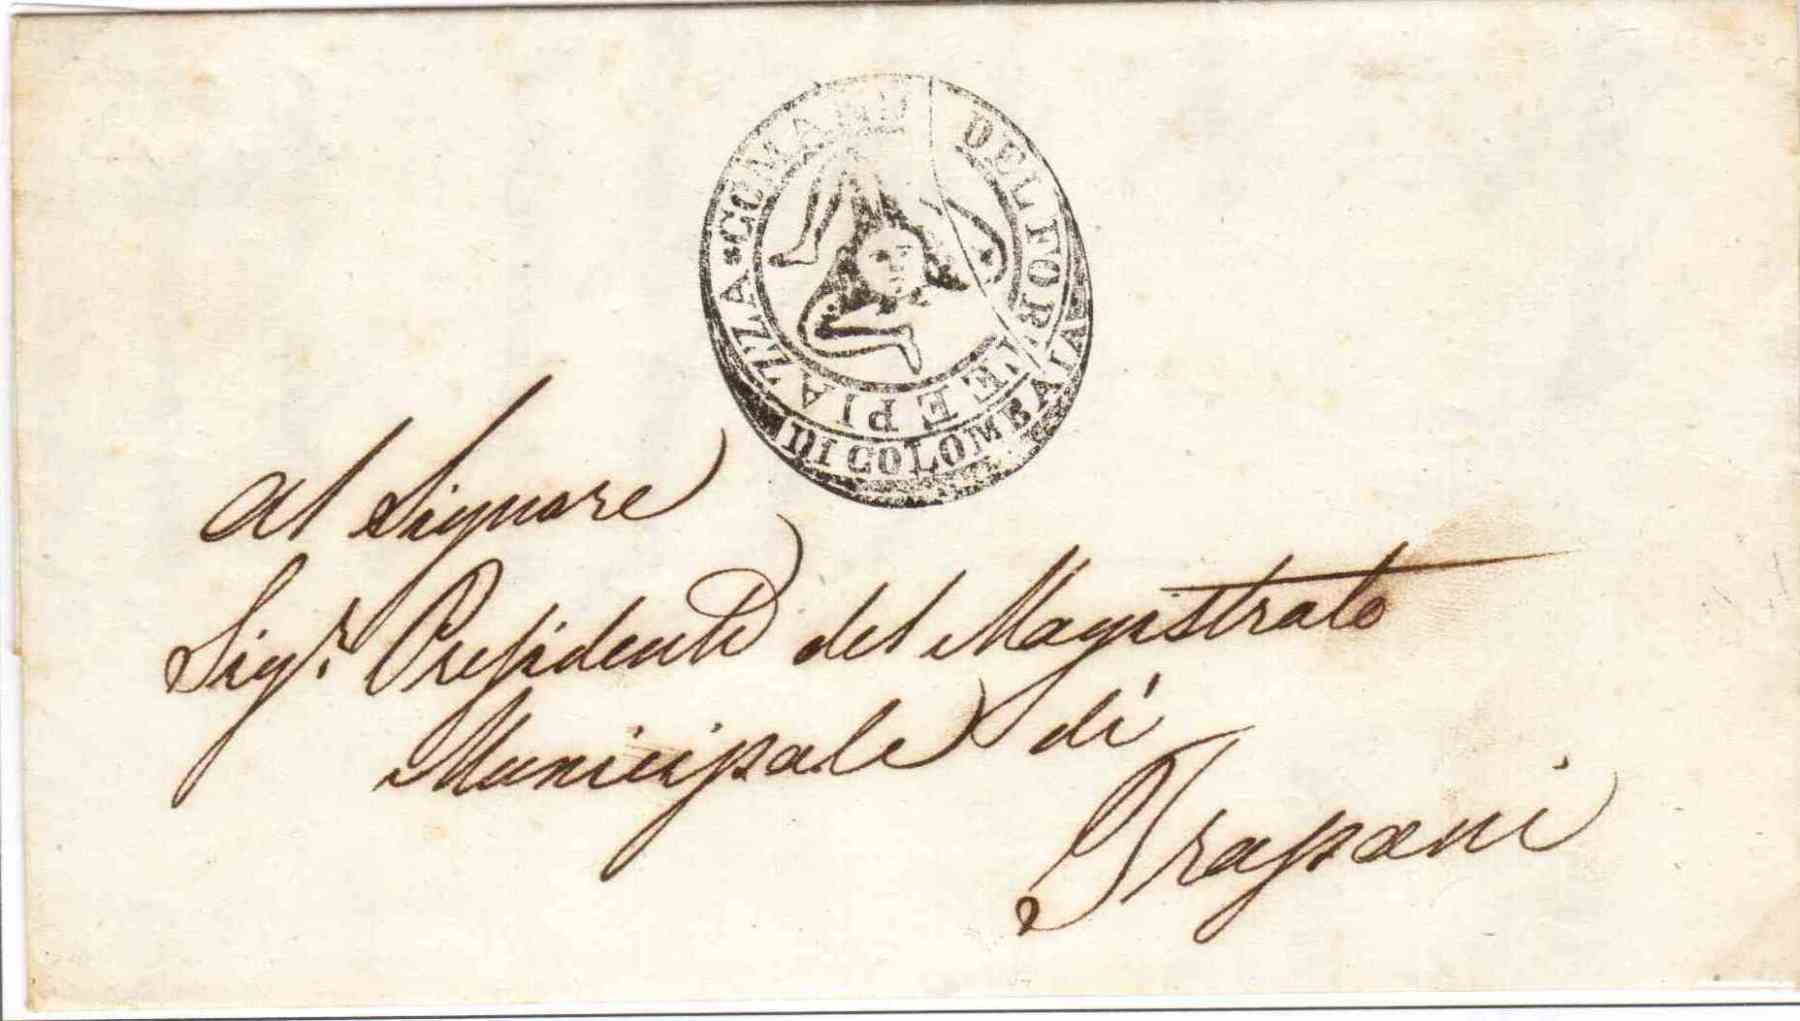 COMANDO DEL FORTE E PIAZZA
DI COLOMBAIA
Al Signore
Sigr. Presidente del Magistrato
Municipale di
Trapani